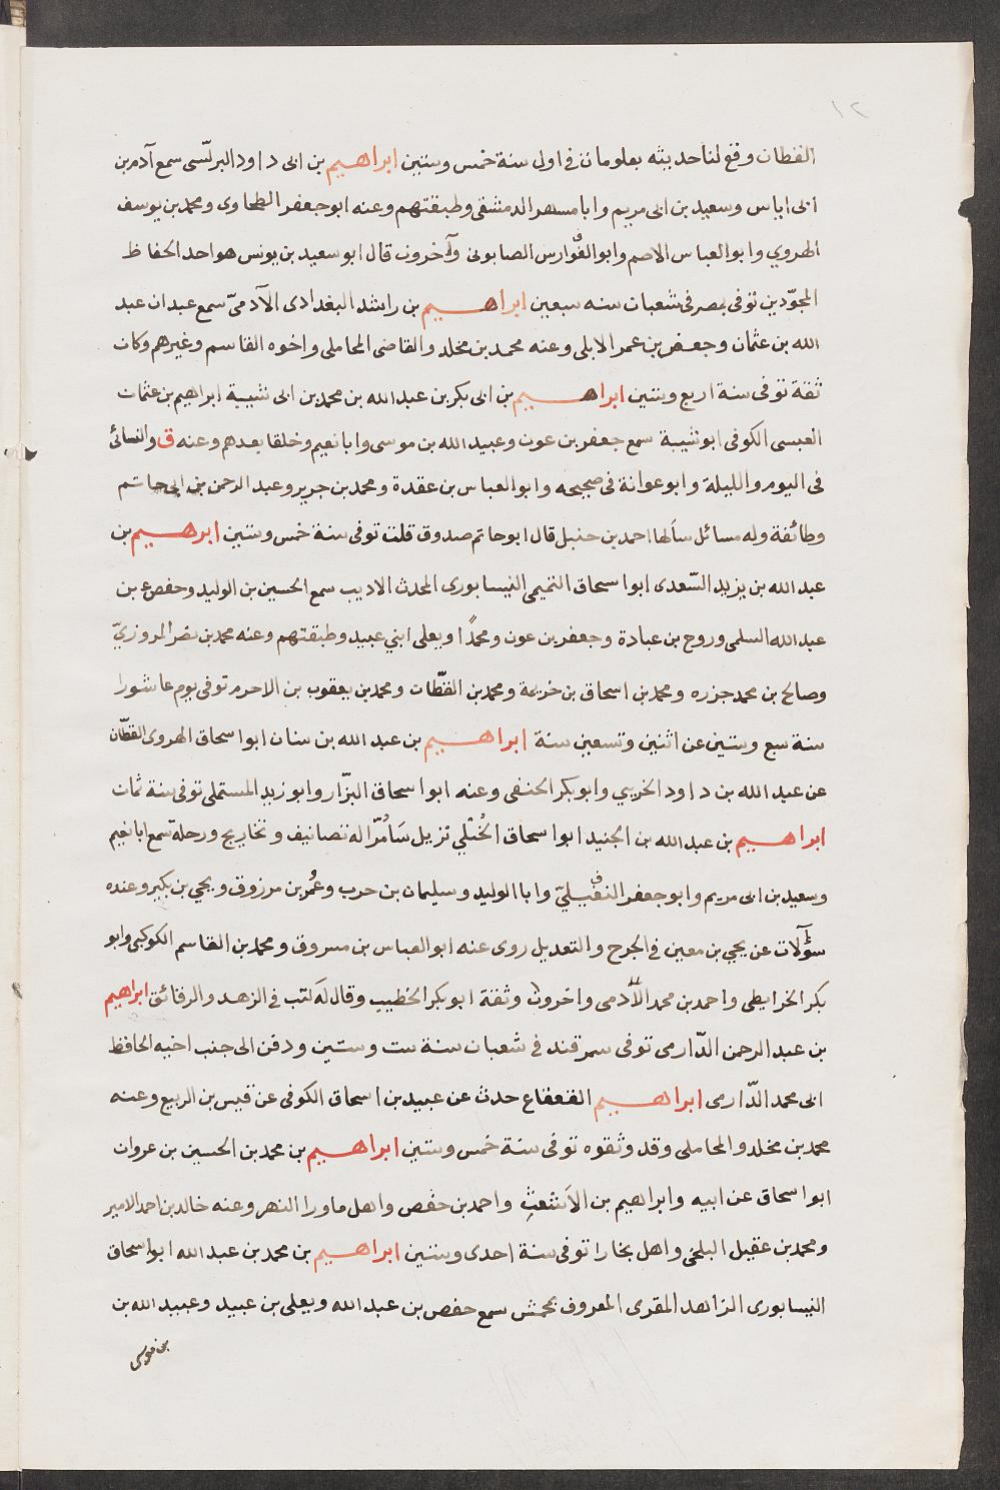 ١٢
القطان وقع لنا حديثه بعلو مات في اول سنة خمس وستين ابراهيم بن ابى داود البرلّسى سمع آدم بن
ابى اياس وسعيد بن ابى مريم وابا مسهر الدمشقى وطبقتهم وعنه ابو جعفر الطحاوى ومحمد بن يوسف
الهروي وابو العباس الاصم وابو الفوارس الصابونى وآخرون قال ابو سعيد بن يونس هو احد الحفاظ
المجوّدين توفى بمصر فى شعبان سنه سبعين ابراهيم بن راشد البغدادى الآدمىّ سمع عبدان عبد
الله بن عثمان وجعفر بن عمر الابلى وعنه محمد بن مخلد والقاضى المحاملى واخوه القاسم وغيرهم وكان
ثقة توفى سنة اربع وستين ابراهيم بن ابى بكر بن عبد الله بن محمد بن ابى شيبة ابراهيم بن عثمان
العبسى الكوفى ابو شيبة سمع جعفر بن عون وعبيد الله بن موسى وابا نعيم وخلقا بعدهم وعنه ق والنسائى
فى اليوم والليلة وابو عوانة فى صحيحه وابو العباس بن عقدة ومحمد بن جرير وعبد الرحمن بن ابى حاتم
وطائفة وله مسائل سألها احمد بن حنبل قال ابو حاتم صدوق قلت توفى سنة خمس وستين ابرهيم بن
عبد الله بن يزيد السّعدى ابو اسحاق التميمى النيسابورى المحدث الاديب سمع الحسين بن الوليد وحفص بن
عبد الله السلمى وروح بن عبادة وجعفر بن عون ومحمدًا ويعلى ابني عبيد وطبقتهم وعنه محمد بن نصر المروزيّ
وصالح بن محمد جزره ومحمد بن اسحاق بن خزيمة ومحمد بن القطّان ومحمد بن يعقوب بن الاحرم توفى يوم عاشورا
سنة سبع وستين عن اثنين وتسعين سنة ابراهيم بن عبد الله بن سنان ابو اسحاق الهروى القطّان
عن عبد الله بن داود الخريبي وابو بكر الحنفى وعنه ابو اسحاق البزّار وابو زيد المستملى توفى سنة ثمان
ابراهيم بن عبد الله بن الجنيد ابو اسحاق الخُتّلي نزيل سَامُرّا له تصانيف وتخاريج ورحلة سمع ابا نعيم
وسعيد بن ابى مريم وابو جعفر النفيليّ وابا الوليد وسليمان بن حرب وعُمر بن مرزوق ويحي بن بكير وعنده
سؤآلات عن يحي بن معين في الجرح والتعديل روى عنه ابو العباس بن مسروق ومحمد بن القاسم الكوكبى وابو
بكر الخرايطى واحمد بن محمد الأدمى واخرون وثقة ابو بكر الخطيب وقال له كتب في الزهد والرقائق ابراهيم
بن عبد الرحمن الدّارمى توفى سمرقند في شعبان سنة ست وستين ودفن الى جنب اخيه الحافظ
ابى محمد الدّارمى ابراهيم القعقاع حدث عن عبيد بن اسحاق الكوفى عن قيس بن الربيع وعنه
محمد بن مخلد والمحاملى وقد وثقوه توفى سنة خمس وستين ابراهيم بن محمد بن الحسين بن عروان
ابو اسحاق عن ابيه وابراهيم بن الاَشعثِ واحمد بن حفص واهل ماورا النهر وعنه خالد بن احمد الامير
ومحمد بن عقيل البلخى واهل بخارا توفى سنة احدى وستين ابراهيم بن محمد بن عبد الله ابو اسحاق
النيسابورى الزاهد المقرى المعروف بحمش سمع حفص بن عبد الله ويعلى بن عبيد وعبيد الله بن
بن موسى